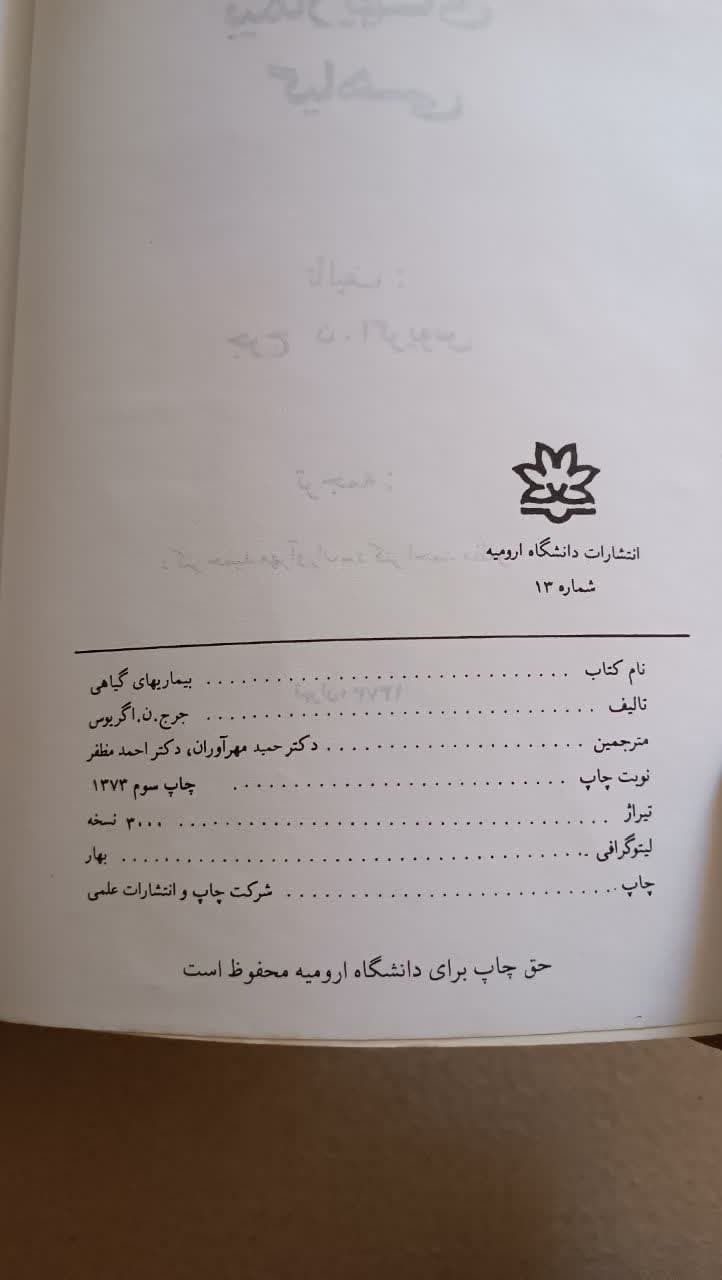 انتشارات دانشگاه ارومیه
شماره ۱۳
نام کتاب . . . . . . . . . . . . . . . . . . . . . . . . . . بیماریهای گیاهی
تالیف . . . . . . . . . . . . . . . . . . . . . . . . . . جرج.ن.اگریوس
مترجمین . . . . . . . . . . . . . . . . . دکتر حمید مهرآوران، دکتر احمد مظفر
نوبت چاپ . . . . . . . . . . . . . . . . . . . . . . چاپ سوم ۱۳۷۳
تیراژ . . . . . . . . . . . . . . . . . . . . . . . . . . . . ۳۰۰۰ نسخه
لیتوگرافی . . . . . . . . . . . . . . . . . . . . . . . . . . . . . . بهار
چاپ . . . . . . . . . . . . . . . . . . . . . . شرکت چاپ و انتشارات علمی
حق چاپ برای دانشگاه ارومیه محفوظ است